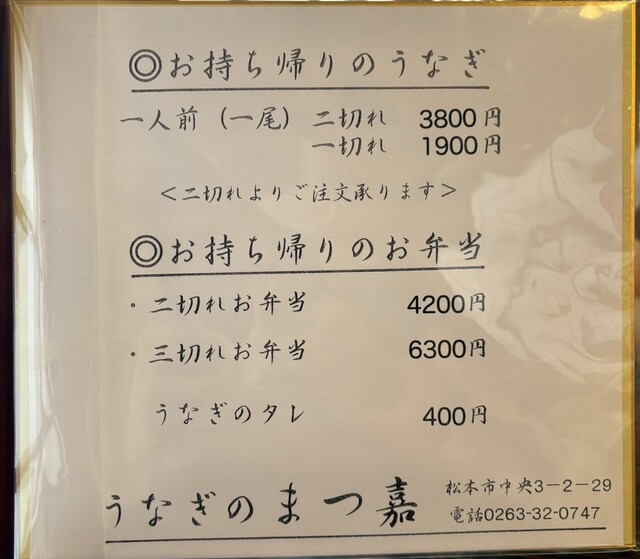 ◎お持ち帰りのうなぎ
一人前（一尾）二切れ 3800円
一切れ 1900円
＜二切れよりご注文承ります＞
◎お持ち帰りのお弁当
・二切れお弁当 4200円
・三切れお弁当 6300円
うなぎのタレ 400円
うなぎのまつ嘉
松本市中央3－2－29
電話0263-32-0747